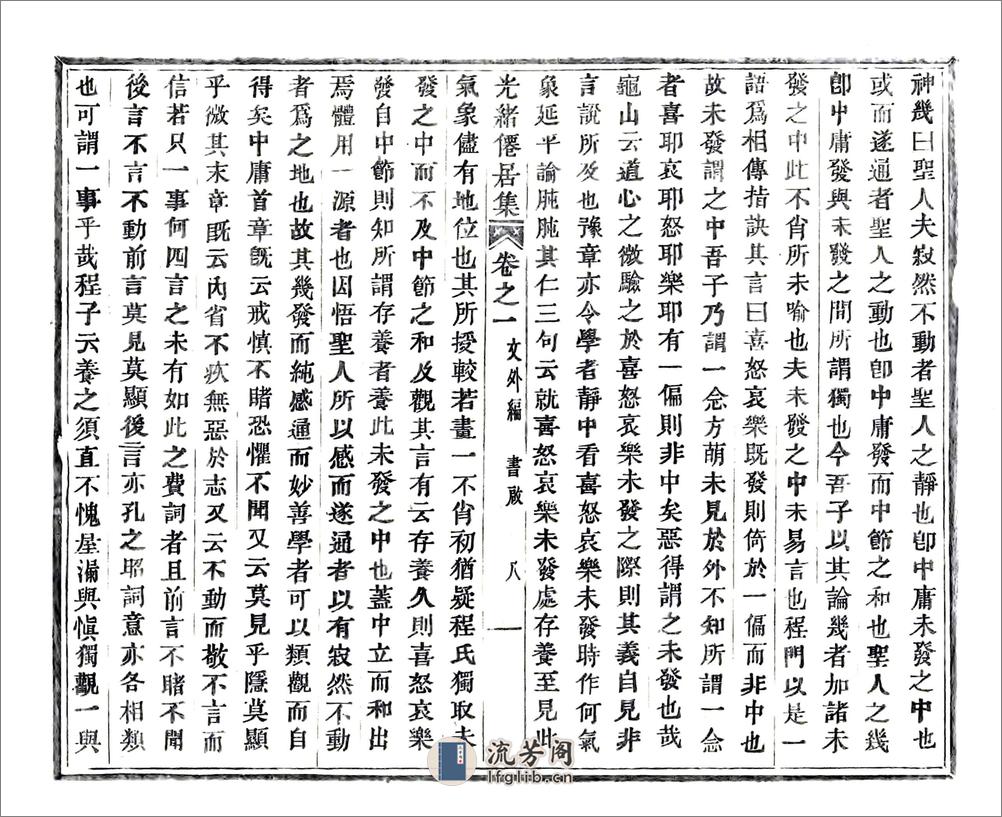 神幾曰聖人夫寂然不動者聖人之靜也卽中庸未發之中也
或而遂通者聖人之動也卽中庸發而中節之和也聖人之幾
卽中庸發與未發之間所謂獨也今吾子以其論幾者加諸未
發之中此不肖所未喻也夫未發之中未易言也程門以是一
語爲相傳指訣其言曰喜怒哀樂既發則倚於一偏而非中也
故未發謂之中吾子乃謂一念方萌未見於外不知所謂一念
者喜耶哀耶怒耶樂耶有一偏則非中矣惡得謂之未發也哉
龜山云道心之微驗之於喜怒哀樂未發之際則其義自見非
言說所及也豫章亦令學者靜中看喜怒哀樂未發時作何氣
象延平論肫肫其仁三句云就喜怒哀樂未發處存養至見此
光緒僊居集 卷之一 文外編 書啟 八
氣象儘有地位也其所授較若畫一不肖初猶疑程氏獨取未
發之中而不及中節之和及觀其言有云存養久則喜怒哀樂
發自中節則知所謂存養者養此未發之中也蓋中立而和出
焉體用一源者也因悟聖人所以感而遂通者以有寂然不動
者爲之地也故其幾發而純感通而妙善學者可以類觀而自
得矣中庸首章旣云戒慎不睹恐懼不聞又云莫見乎隱莫顯
乎微其末章旣云內省不疚無惡於志又云不動而敬不言而
信若只一事何四言之未有如此之費詞者且前言不睹不聞
後言不言不動前言莫見莫顯後言亦孔之昭詞意亦各相類
也可謂一事乎哉程子云養之須直不愧屋漏與愼獨觀一與
流芳阁
lfglib.cn